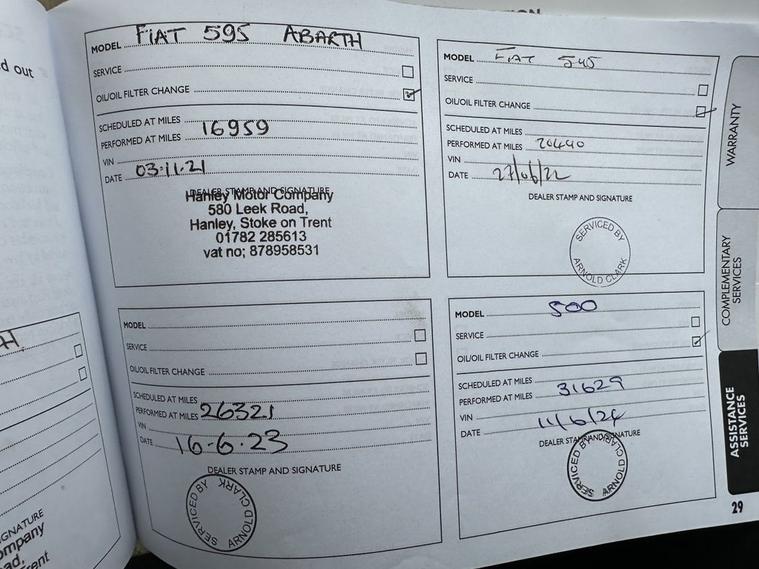 d out
MODEL FIAT 595 ABARTH
SERVICE
OIL/OIL FILTER CHANGE
SCHEDULED AT MILES
PERFORMED AT MILES 16959
VIN
DATE 03.11.21
DEALER STAMP AND SIGNATURE
Hanley Motor Company
580 Leek Road,
Hanley, Stoke on Trent
01782 285613
vat no; 878958531
MODEL FIAT
SERVICE
OIL/OIL FILTER CHANGE
SCHEDULED AT MILES
PERFORMED AT MILES 20440
VIN
DATE 27/06/22
DEALER STAMP AND SIGNATURE
SERVICED BY
ARNOLD CLARK
MODEL
SERVICE
OIL/OIL FILTER CHANGE
SCHEDULED AT MILES
PERFORMED AT MILES 26321
VIN
DATE 16.6.23
DEALER STAMP AND SIGNATURE
SERVICED BY
ARNOLD CLARK
MODEL 500
SERVICE
OIL/OIL FILTER CHANGE
SCHEDULED AT MILES
PERFORMED AT MILES 31629
VIN
DATE 11/6/24
DEALER STAMP AND SIGNATURE
SERVICED BY
ARNOLD CLARK
WARRANTY
COMPLEMENTARY
SERVICES
ASSISTANCE
SERVICES
29
H
GNATURE
ompany
ad,
rent